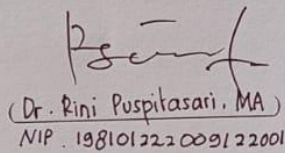 (Dr. Rini Puspitasari, MA)
NIP. 198101222009122001